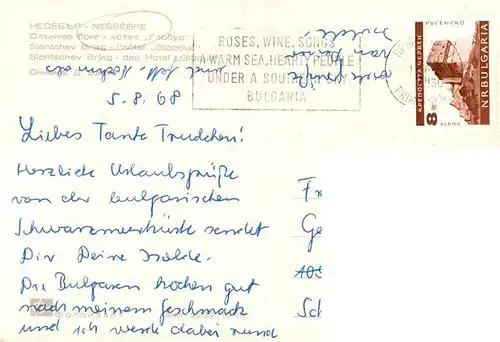 НЕСЕБЪР - NESSÈBRE
Слънчев бряг - хотел „Глобус"
Slantchev Briag - l'hôtel „Globous"
Slantschev Brjag - das Hotel „Globus"
ROSES, WINE, SONGS
A WARM SEA, HEARTY PEOPLE
UNDER A SOUTHERN SKY
BULGARIA
КРЕПОСТТА ЧЕРВЕН
РУСЕНСКО
8
НРБЪЛГАРИЯ
5.8.68
Liebes Tante Trudchen!
Herzliche Urlaubsgrüße
von der bulgarischen
Schwarzmeerküste sendet
Dir Deine Isolde.
Die Bulgaren kochen gut
nach meinem Geschmack
und ich werde dabei rund
Fr
Ge
Sch